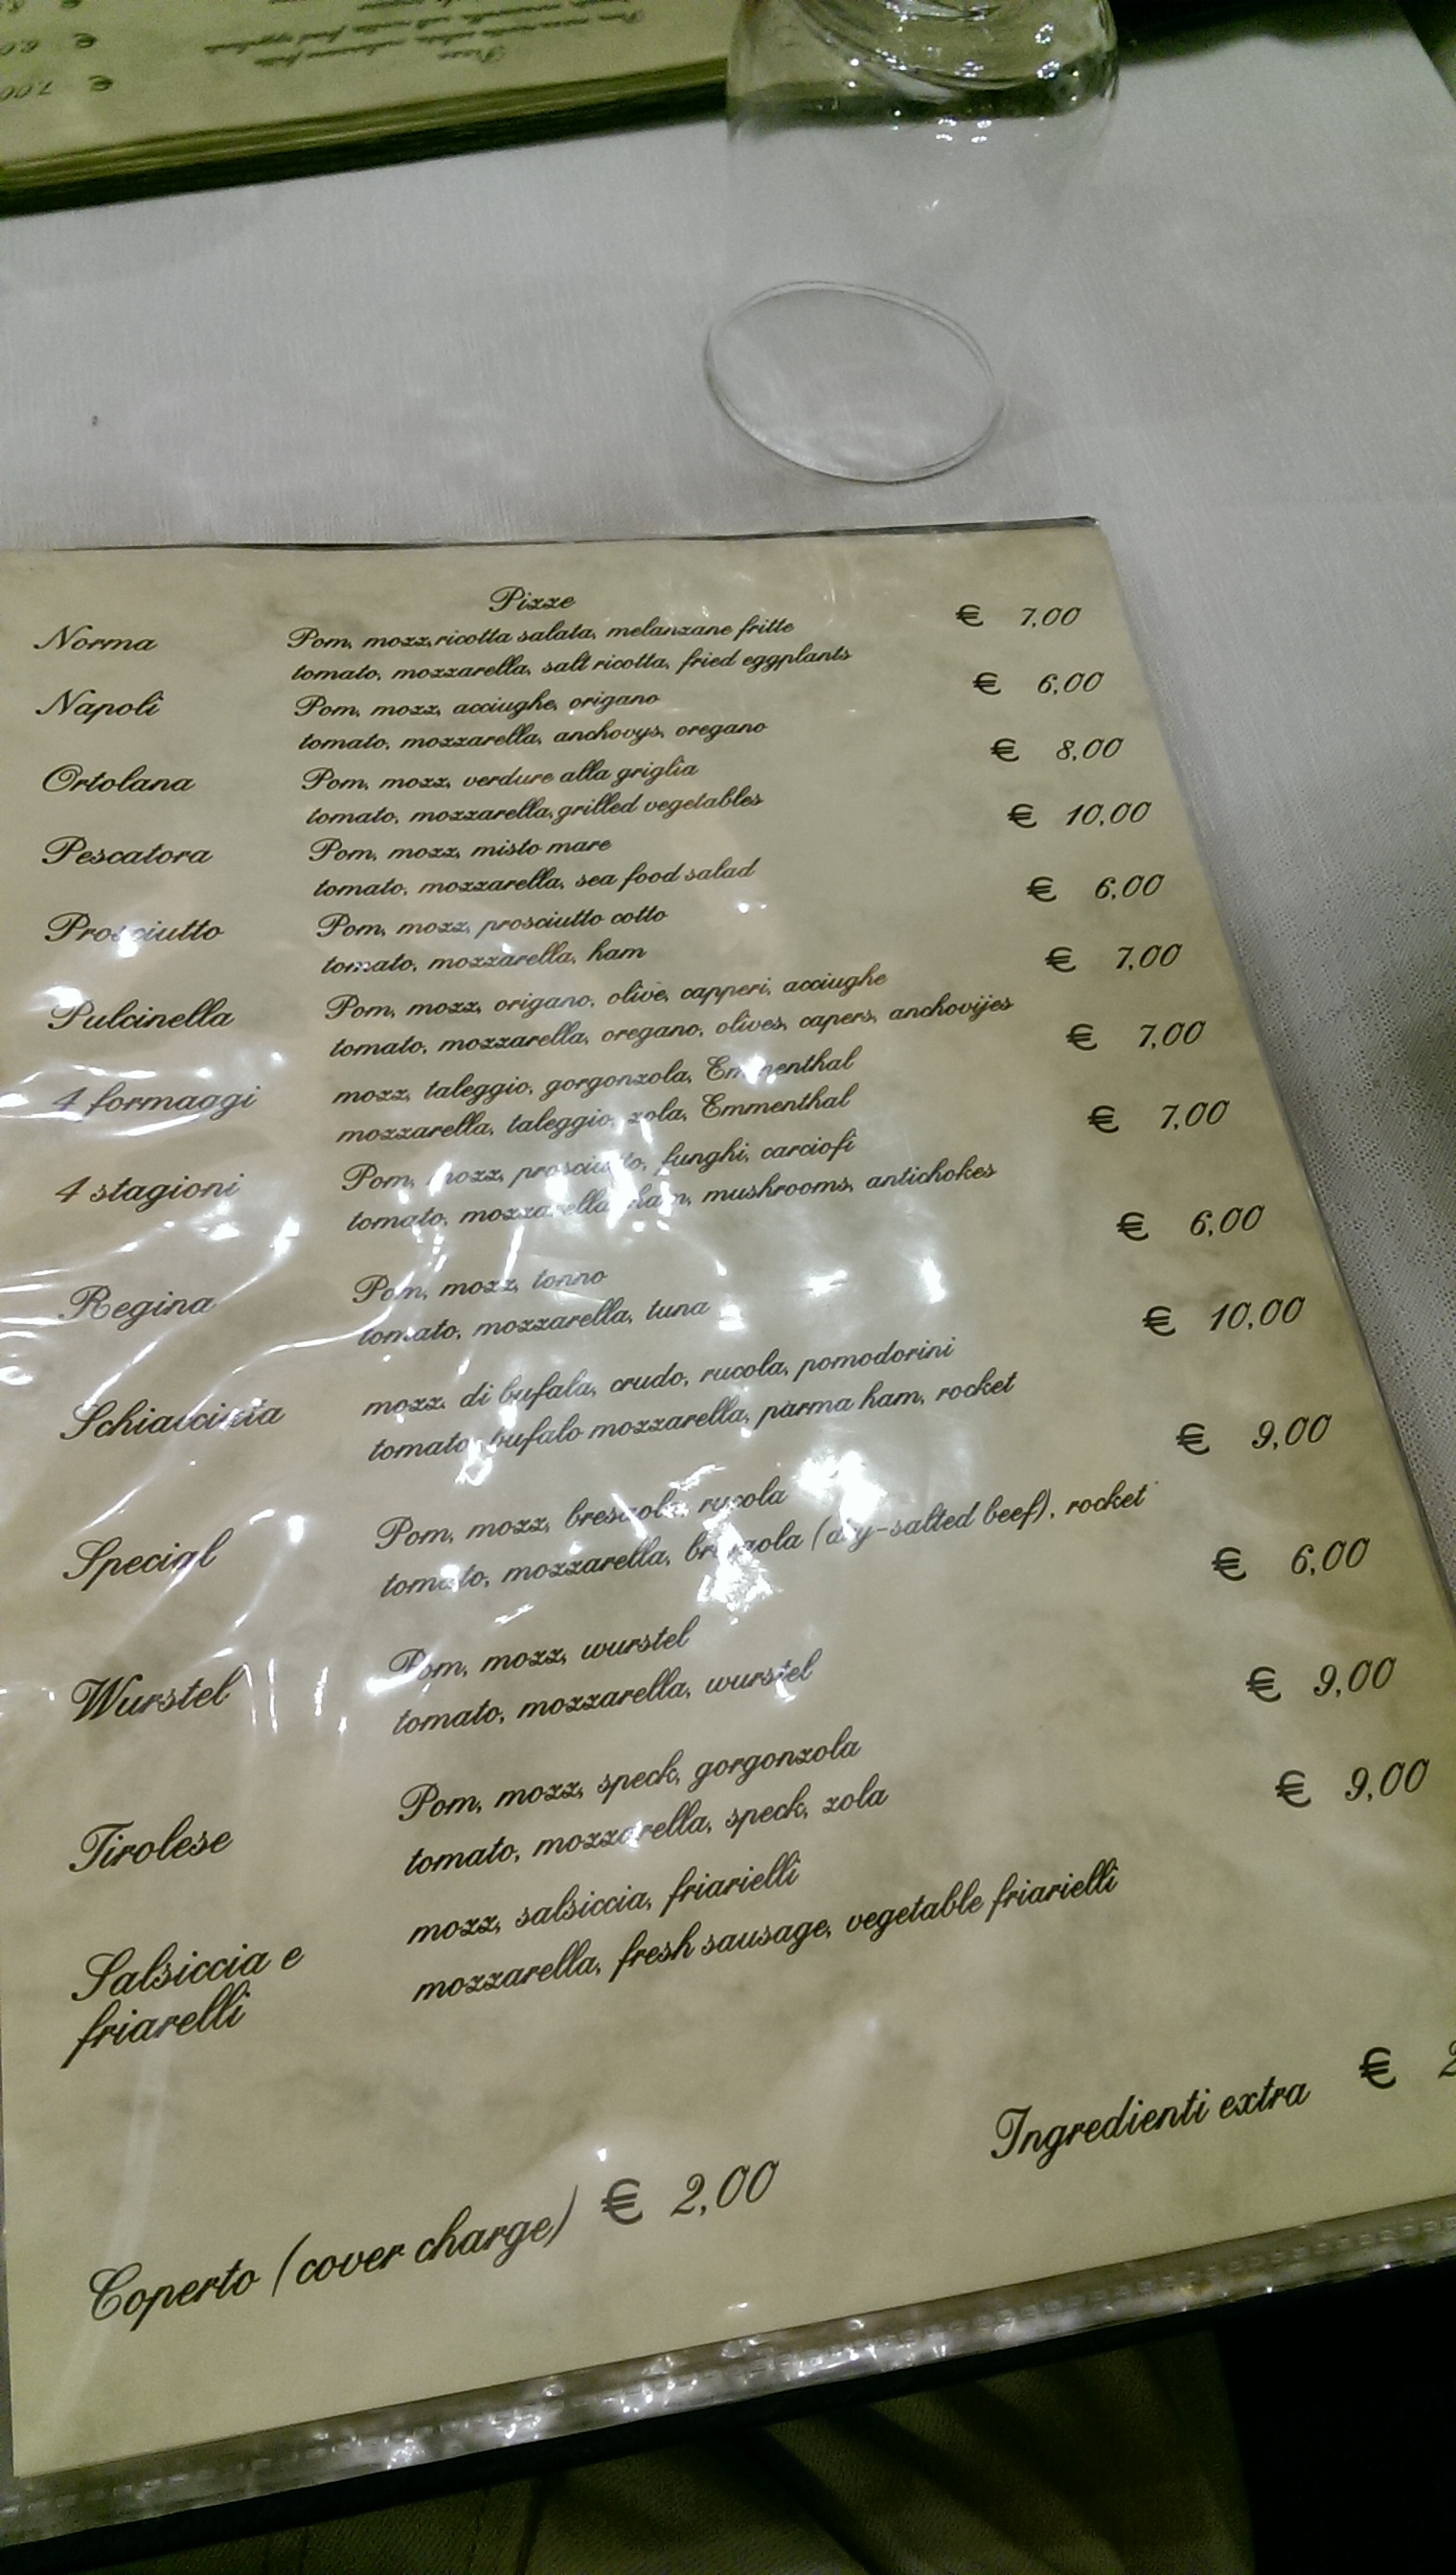 € 7,00
€ 6,0
Pizze
Norma Pom, mozz,ricotta salata, melanzane fritte € 7,00
tomato, mozzarella, salt ricotta, fried eggplants
Napoli Pom, mozz, acciughe, origano € 6,00
tomato, mozzarella, anchovys, oregano
Ortolana Pom, mozz, verdure alla griglia € 8,00
tomato, mozzarella,grilled vegetables
Pescatora Pom, mozz, misto mare € 10,00
tomato, mozzarella, sea food salad
Prosciutto Pom, mozz, prosciutto cotto € 6,00
tomato, mozzarella, ham
Pulcinella Pom, mozz, origano, olive, capperi, acciughe € 7,00
tomato, mozzarella, oregano, olives, capers, anchovijes
4 formaggi mozz, taleggio, gorgonzola, Emmenthal € 7,00
mozzarella, taleggio, zola, Emmenthal
4 stagioni Pom, mozz, prosciutto, funghi, carciofi € 7,00
tomato, mozzarella, ham, mushrooms, antichokes
Regina Pom, mozz, tonno € 6,00
tomato, mozzarella, tuna
Schiacciata mozz. di bufala, crudo, rucola, pomodorini € 10,00
tomato, bufalo mozzarella, parma ham, rocket
Special Pom, mozz, bresaola, rucola € 9,00
tomato, mozzarella, bresaola (dry-salted beef), rocket
Wurstel Pom, mozz, wurstel € 6,00
tomato, mozzarella, wurstel
Tirolese Pom, mozz, speck, gorgonzola € 9,00
tomato, mozzarella, speck, zola
Salsiccia e mozz, salsiccia, friarielli € 9,00
friarelli mozzarella, fresh sausage, vegetable friarielli
Ingredienti extra € 2
Coperto (cover charge) € 2,00